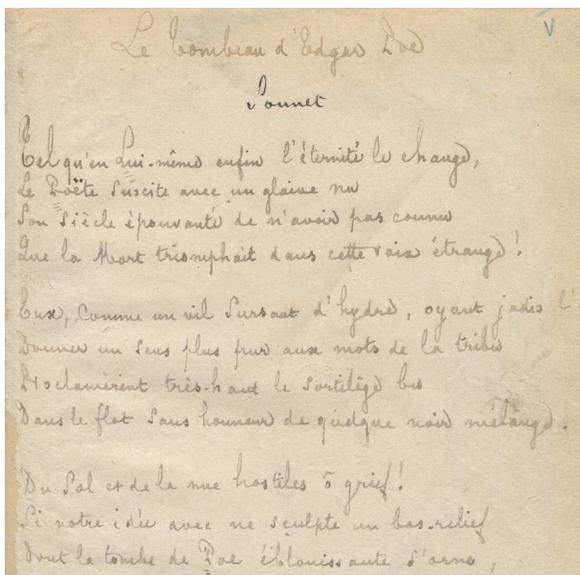 Le Tombeau d'Edgar Poe
Sonnet
V
Tel qu'en Lui-même enfin l'éternité le change,
Le Poëte suscite avec un glaive nu
Son Siècle épouvanté de n'avoir pas connu
Que la Mort triomphait dans cette voix étrange!
Eux, comme un vil sursaut d'hydre, oyant jadis l'
Donner un sens plus pur aux mots de la tribu
Proclamèrent très-haut le sortilège bu
Dans le flot sans honneur de quelque noir mélange.
Du Sol et de la nue hostiles ô grief!
Si notre idée avec ne sculpte un bas-relief
Dont la tombe de Poe éblouissante s'orne,